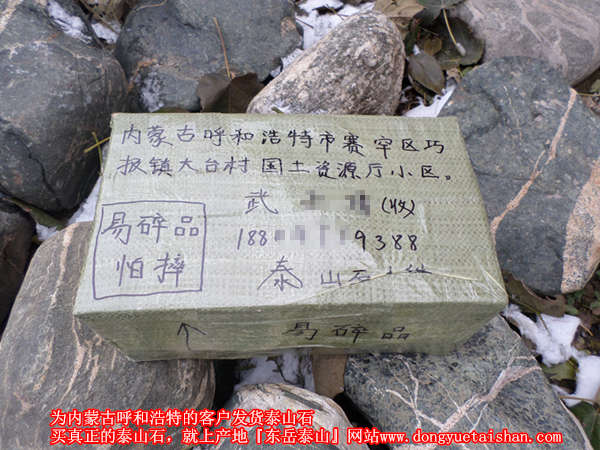 内蒙古呼和浩特市赛罕区巧
报镇大台村国土资源厅小区。
武 (收)
188 9388
易碎品
怕摔
泰山石
易碎品
为内蒙古呼和浩特的客户发货泰山石
买真正的泰山石，就上产地『东岳泰山』网站www.dongyuetaishan.com